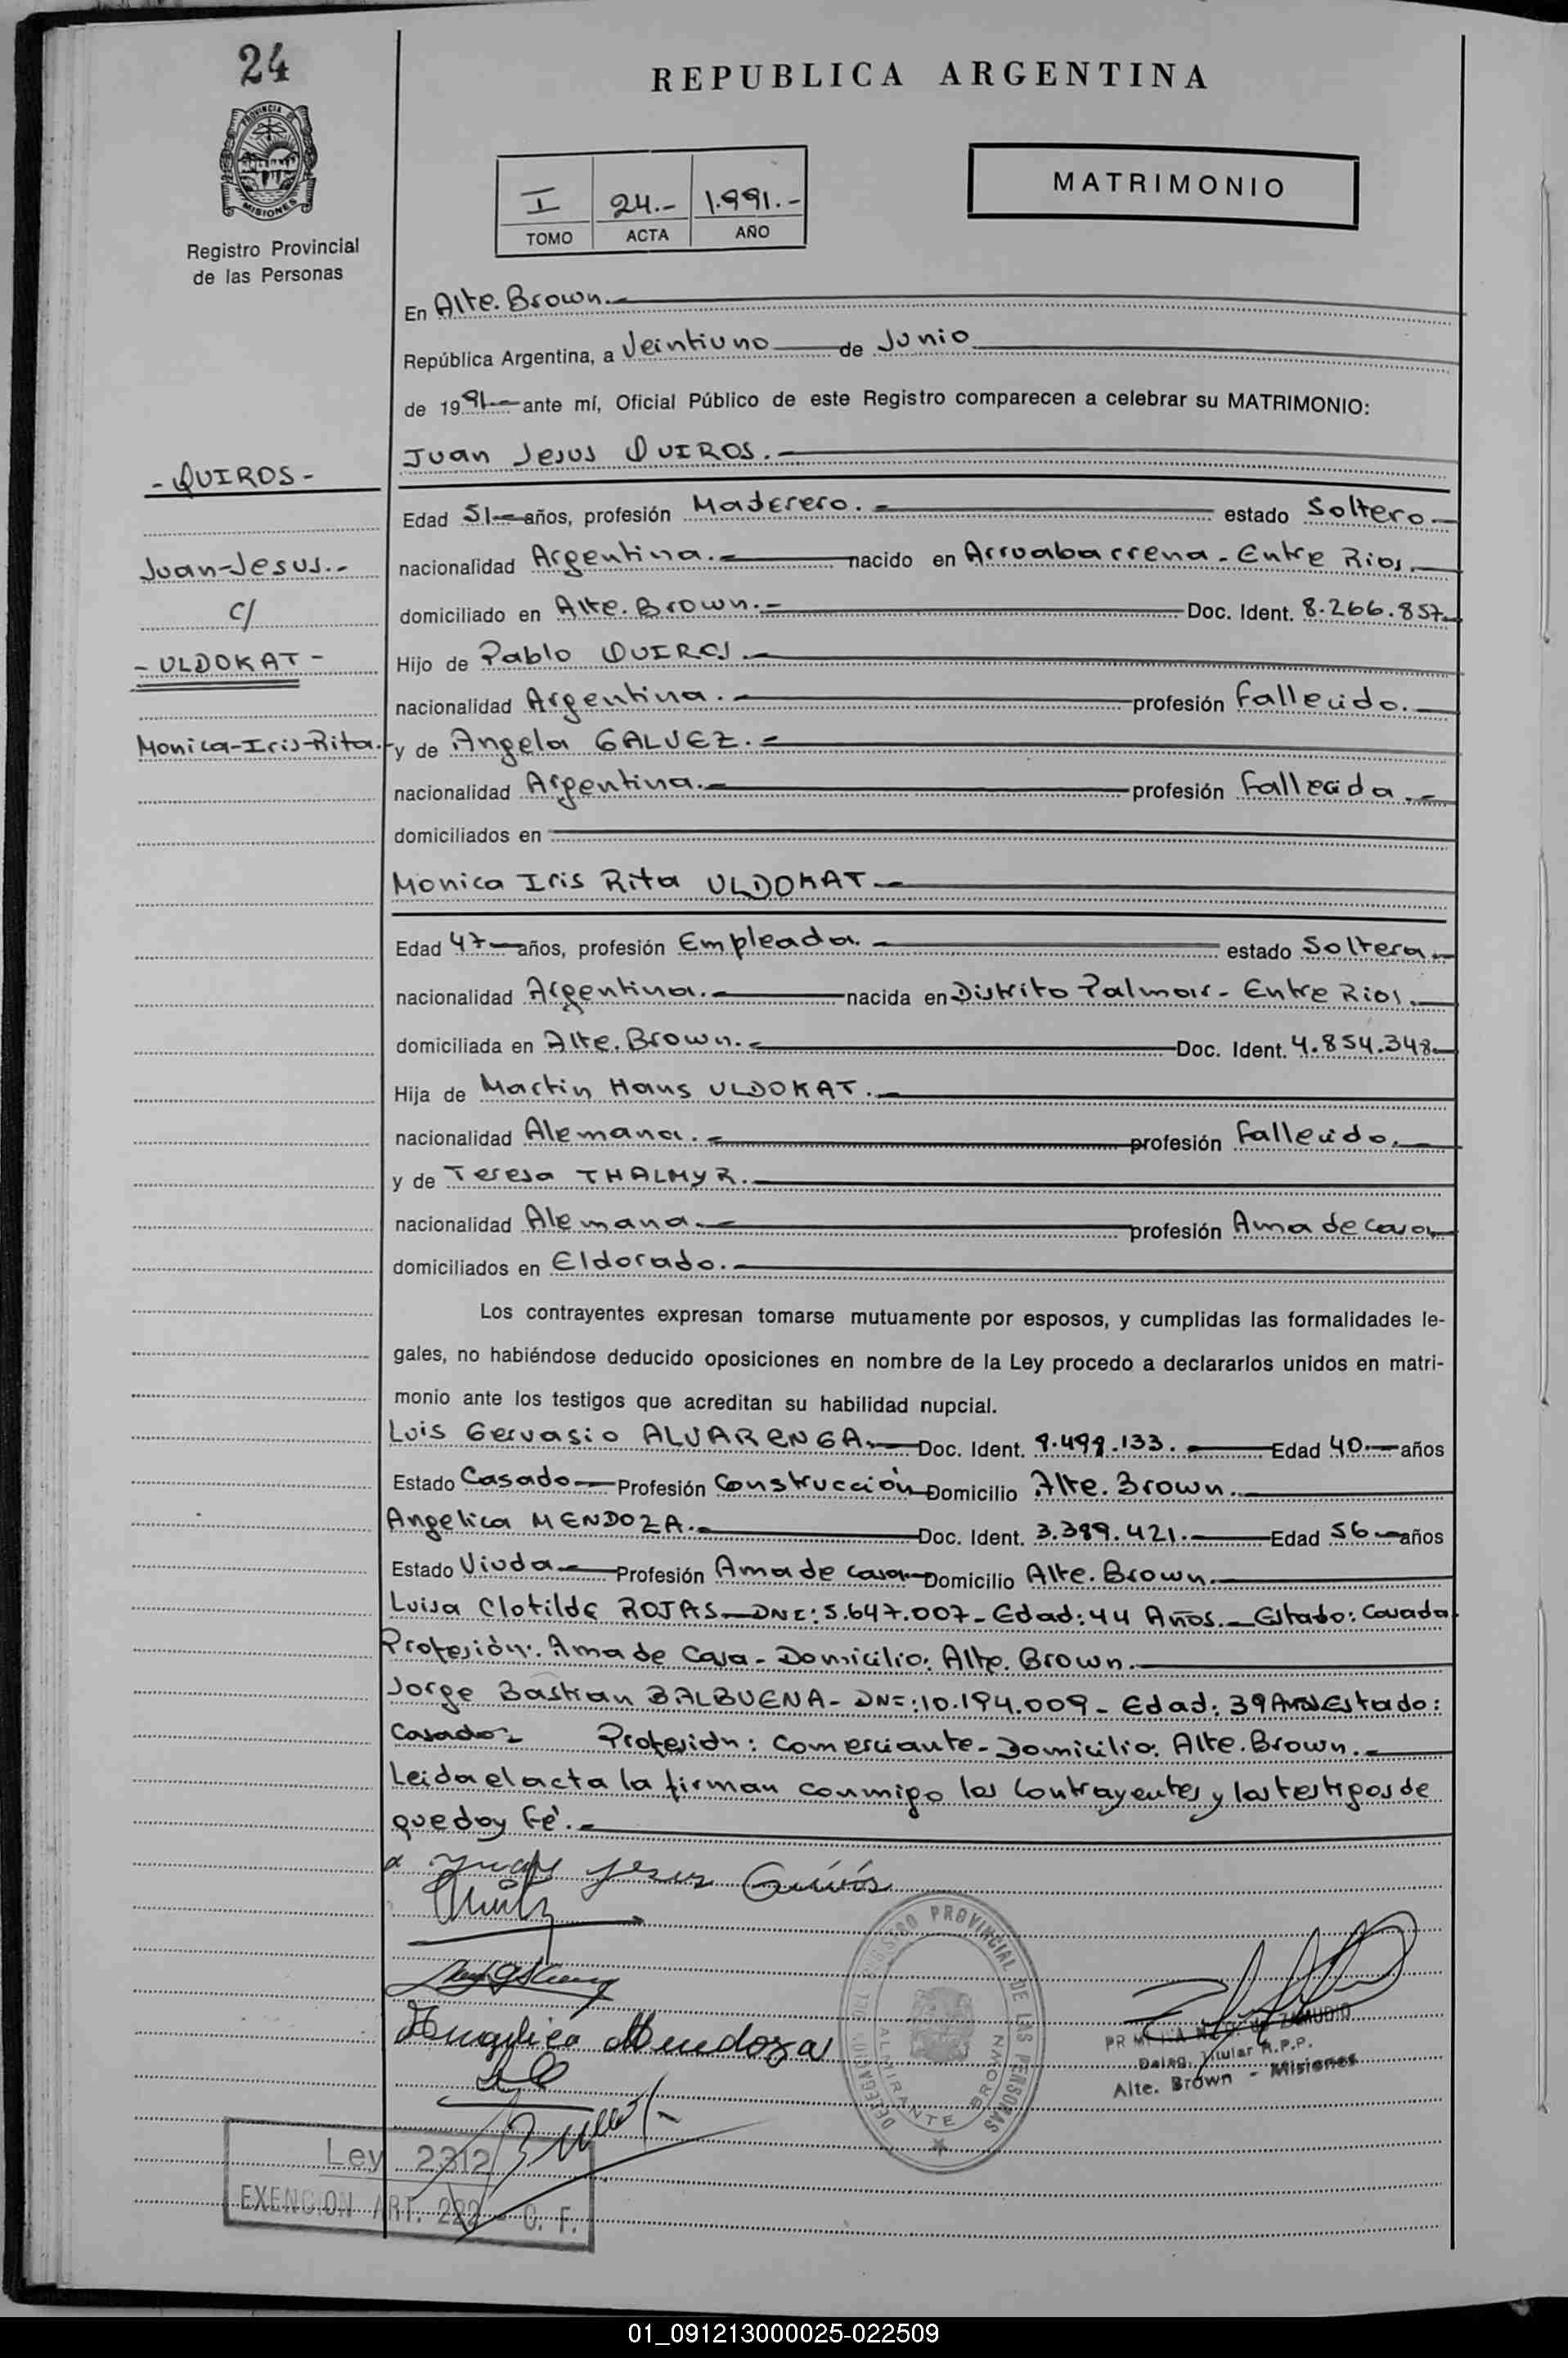 24
PROVINCIA DE
MISIONES
Registro Provincial
de las Personas
REPUBLICA ARGENTINA
I 24.- 1.991.-
TOMO ACTA AÑO
MATRIMONIO
En Alte. Brown.-
República Argentina, a Veintiuno de Junio
de 1991.- ante mí, Oficial Público de este Registro comparecen a celebrar su MATRIMONIO:
Juan Jesus QUIROS.-
- QUIROS -
Juan-Jesus.-
C/
- ULDOKAT -
Monica-Iris-Rita.-
Edad 51- años, profesión Maderero.- estado Soltero-
nacionalidad Argentina.- nacido en Arruabarrena - Entre Rios.-
domiciliado en Alte. Brown.- Doc. Ident. 8.266.857-
Hijo de Pablo QUIROS.-
nacionalidad Argentina.- profesión fallecido.-
y de Angela GALVEZ.-
nacionalidad Argentina.- profesión fallecida.-
domiciliados en
Monica Iris Rita ULDOKAT.-
Edad 47- años, profesión Empleada.- estado Soltera.-
nacionalidad Argentina.- nacida en Distrito Palmar - Entre Rios.-
domiciliada en Alte. Brown.- Doc. Ident. 4.854.348-
Hija de Martin Hans ULDOKAT.-
nacionalidad Alemana.- profesión fallecido.-
y de Teresa THALMYR.-
nacionalidad Alemana.- profesión Ama de casa.-
domiciliados en Eldorado.-
Los contrayentes expresan tomarse mutuamente por esposos, y cumplidas las formalidades le-
gales, no habiéndose deducido oposiciones en nombre de la Ley procedo a declararlos unidos en matri-
monio ante los testigos que acreditan su habilidad nupcial.
Luis Gervasio ALVARENGA.- Doc. Ident. 8.499.133.- Edad 40.- años
Estado Casado- Profesión Construcción- Domicilio Alte. Brown.-
Angelica MENDOZA.- Doc. Ident. 3.389.421.- Edad 56- años
Estado Viuda.- Profesión Ama de casa- Domicilio Alte. Brown.-
Luisa Clotilde ROJAS- DNI: 5.647.007- Edad: 44 Años.- Estado: Casada
Profesión: Ama de Casa - Domicilio: Alte. Brown.-
Jorge Bastian BALBUENA - DNI: 10.194.009 - Edad: 39 Años Estado:
Casado- Profesión: Comerciante - Domicilio: Alte. Brown.-
Leida el acta la firman conmigo los contrayentes y los testigos de
que doy Fé.-
Juan Jesus Quirós
Angelica Mendoza
DELEGACION DEL REGISTRO PROVINCIAL DE LAS PERSONAS
ALMIRANTE BROWN
ZAMUDIO
Deleg. Titular R.P.P.
Alte. Brown - Misiones
Ley 2312
EXENCION ART. 222 - C. F.
01_091213000025-022509